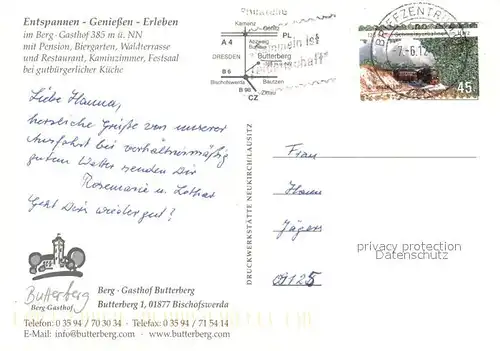 Entspannen - Genießen - Erleben
im Berg - Gasthof 385 m ü. NN
mit Pension, Biergarten, Waldterrasse
und Restaurant, Kaminzimmer, Festsaal
bei gutbürgerlicher Küche
Kamenz
PL
A 4
Görlitz
Burkau
DRESDEN
Butterberg
B 6
Bautzen
Bischofswerda
B 98
Zittau
CZ
Sammeln ist
BRIEFZENTRUM
-7.-6.12
45
Liebe Hanna,
herzliche Grüße von unserer
Ausfahrt bei verhältnismäßig
gutem Wetter senden Dir
Rosemarie u. Lothar
Geht Dir's wieder gut?
Frau
Hann
Jägers
09125
DRUCKWERKSTÄTTE NEUKIRCH/LAUSITZ
privacy protection
Datenschutz
Butterberg
Berg-Gasthof
Berg - Gasthof Butterberg
Butterberg 1, 01877 Bischofswerda
Telefon: 0 35 94 / 70 30 34 · Telefax: 0 35 94 / 71 54 14
E-Mail: info@butterberg.com · www.butterberg.com